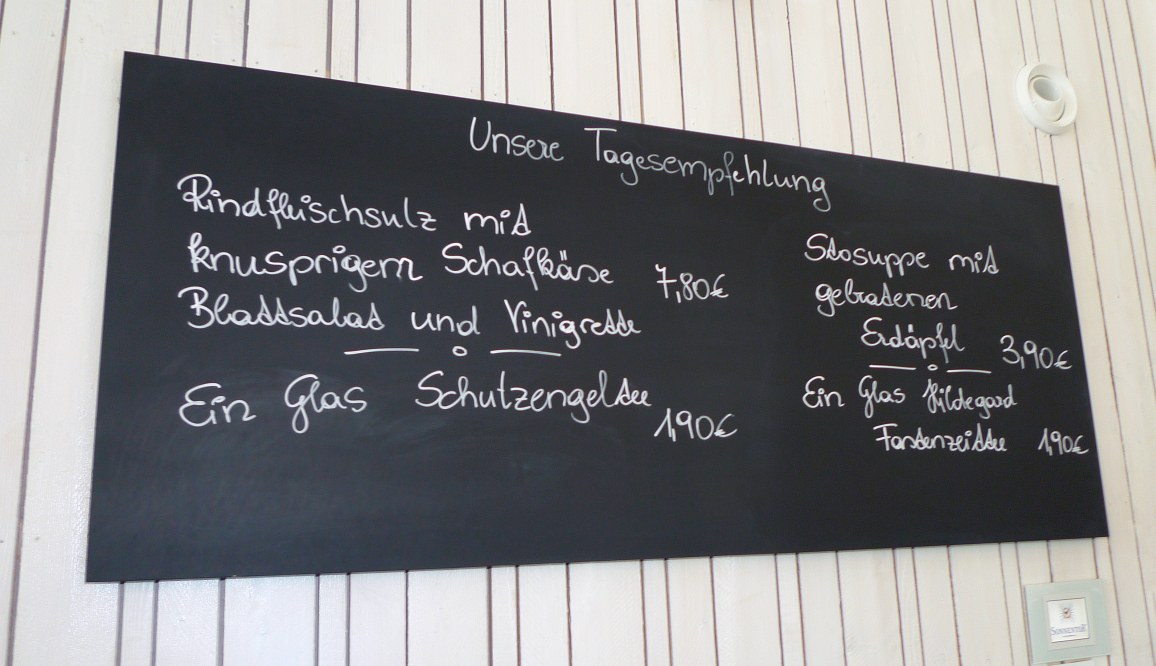 Unsere Tagesempfehlung
Rindfleischsulz mit
knusprigem Schafkäse 7,80€
Blattsalat und Vinigrette
Ein Glas Schutzengeltee
1,90€
Stosuppe mit
gebratenen
Erdäpfel 3,90€
Ein Glas Hildegard
Fastenzeittee 1,90€
SONNENTOR